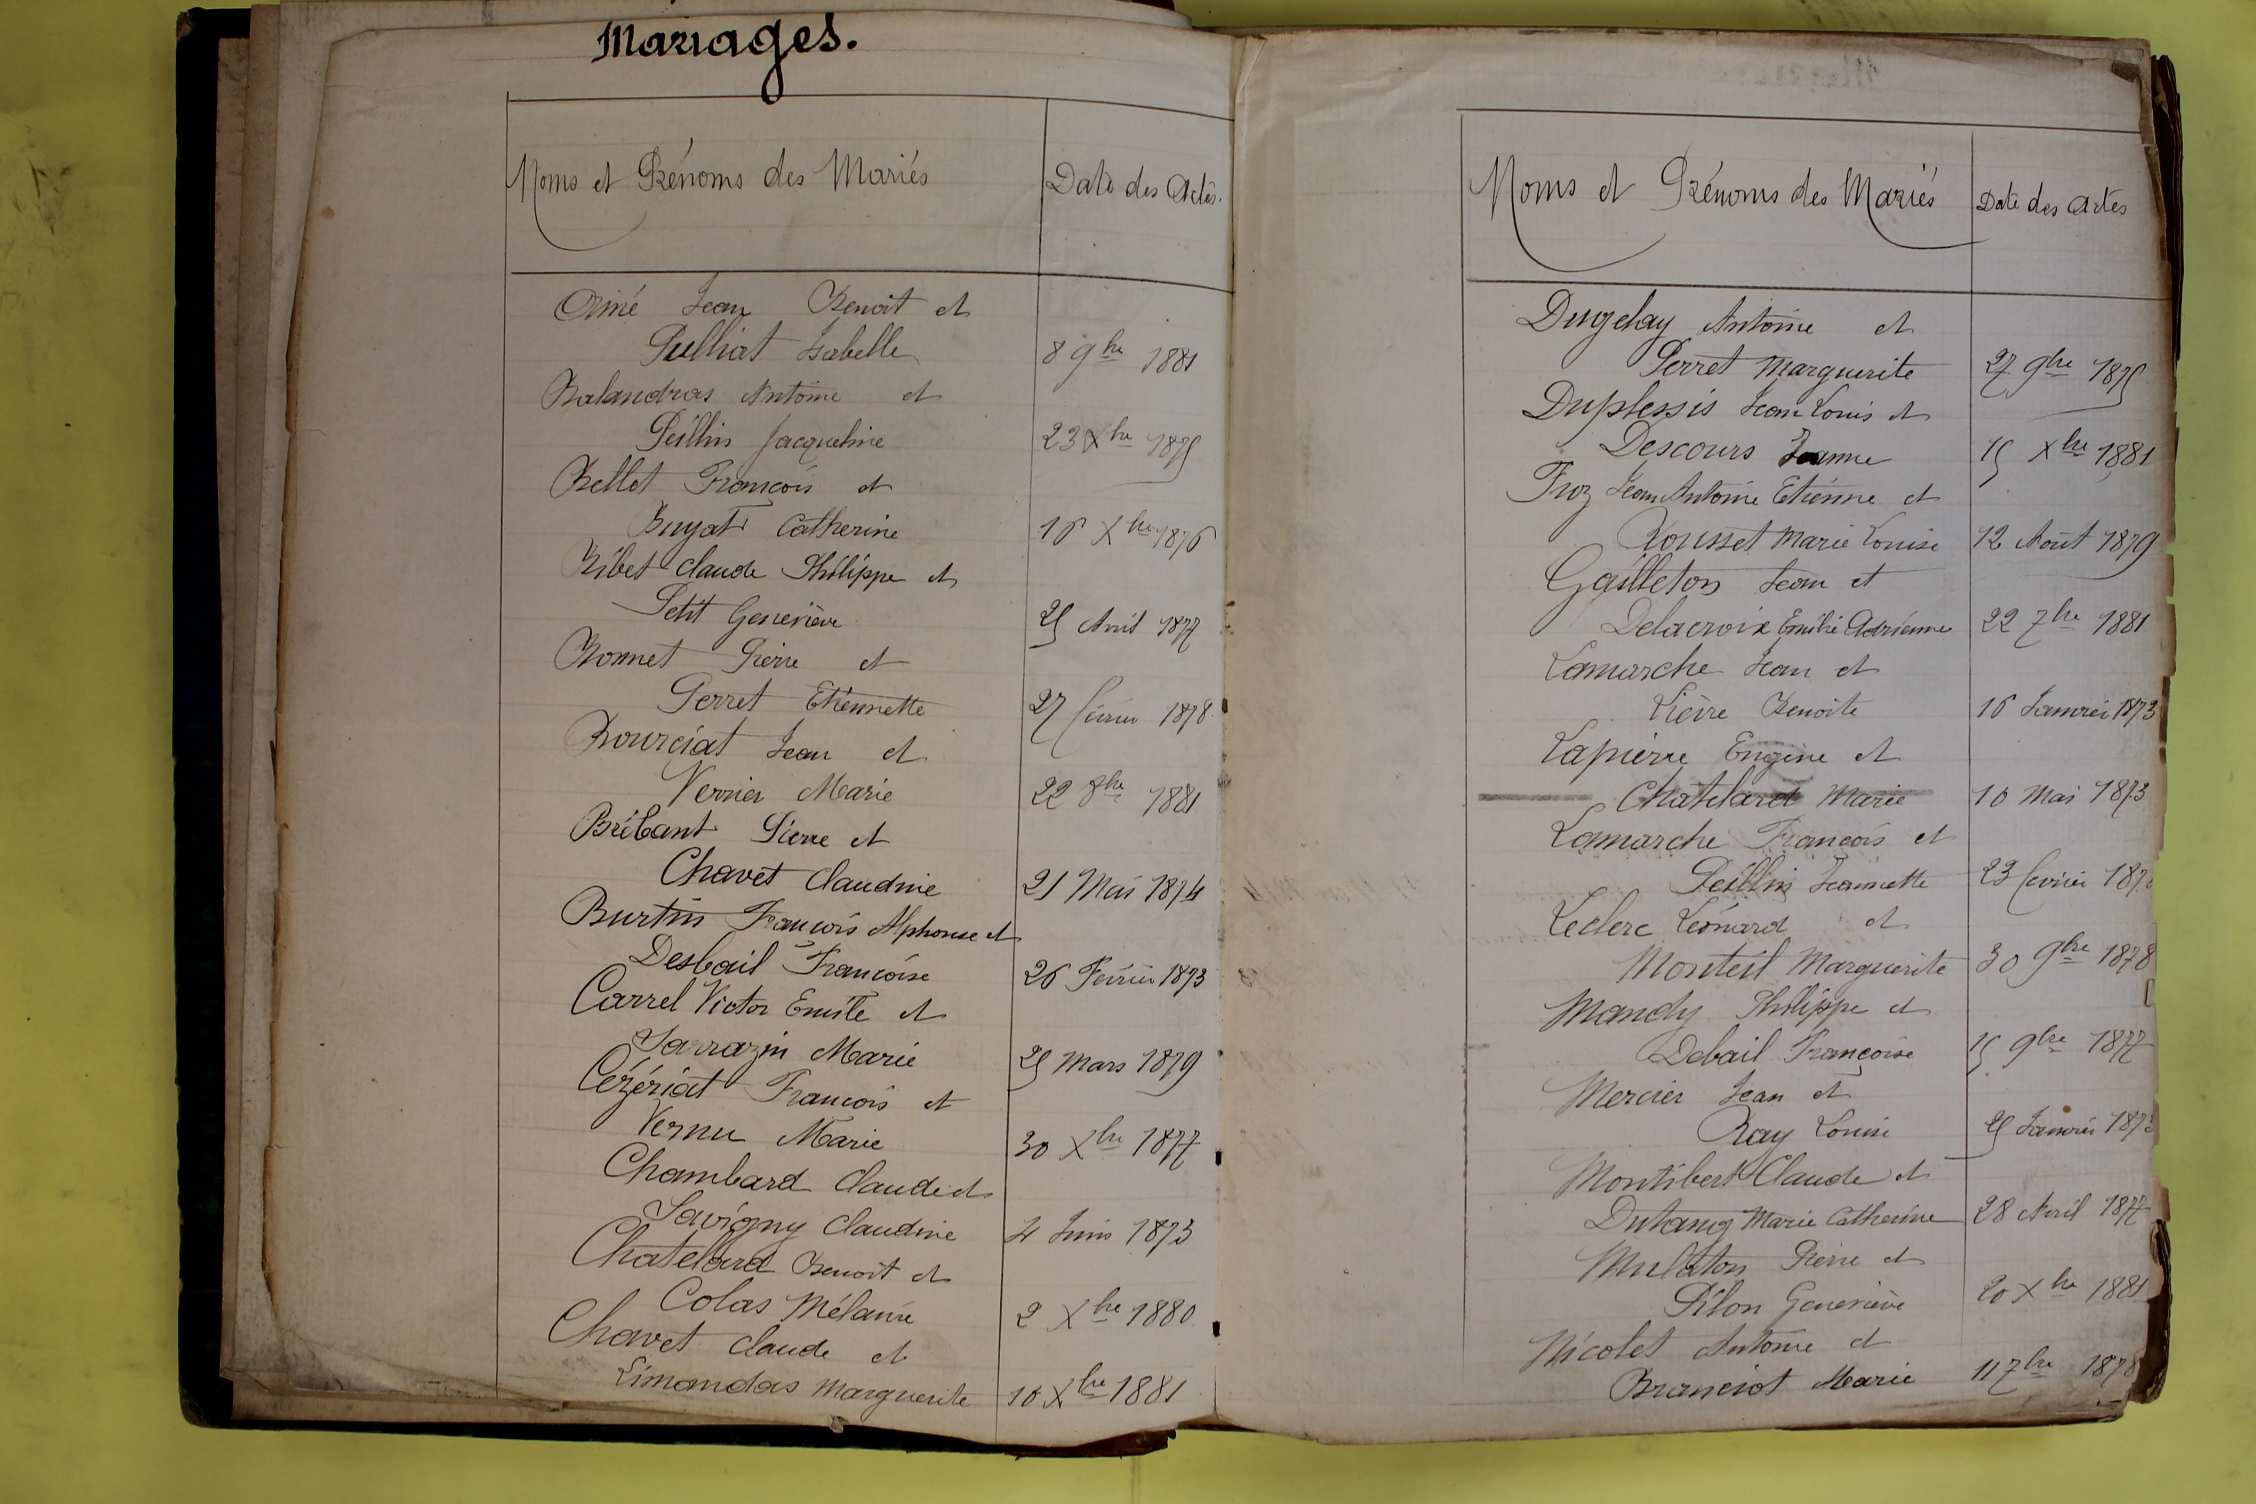 Mariages.
Noms et Prénoms des Mariés Date des Actes.
Aimé Jean Benoit et
Pulliat Isabelle 8 9bre 1881
Balandras Antoine et
Peillin Jacqueline 23 Xbre 1875
Bellet François et
Buyat Catherine 16 Xbre 1876
Bibet Claude Philippe et
Petit Geneviève 25 Avril 1877
Bonnet Pierre et
Perret Etiennette 27 février 1878
Bourciat Jean et
Verrier Marie 22 8bre 1881
Bribant Pierre et
Chavet Claudine 21 Mai 1874
Burtin François Alphonse et
Desbail Françoise 26 Février 1873
Carrel Victor Emile et
Sarrazin Marie 25 Mars 1879
Cézériat François et
Vernu Marie 30 Xbre 1877
Chambard Claude et
Savigny Claudine 4 Juin 1873
Chatelard Benoit et
Colas Mélanie 2 Xbre 1880
Chavet Claude et
Limandas Marguerite 10 Xbre 1881
Noms et Prénoms des Mariés Date des Actes
Dugelay Antoine et
Perret Marguerite 27 9bre 1875
Duplessis Jean Louis et
Descours Jeanne 15 Xbre 1881
Froz Jean Antoine Etienne et
Rousset Marie Louise 12 Août 1879
Gailleton Jean et
Delacroix Emilie Adrienne 22 7bre 1881
Lamarche Jean et
Lièvre Benoite 16 Janvier 1873
Lapierre Eugène et
Chatelard Marie 10 Mai 1873
Lamarche François et
Peillin Jeannette 23 février 187
Leclerc Léonard et
Monteil Marguerite 30 9bre 1878
Mandy Philippe et
Debail Françoise 15 9bre 1877
Mercier Jean et
Ray Louise 25 Janvier 1873
Montibert Claude et
Dutang Marie Catherine 28 Avril 1877
Mulaton Pierre et
Pilon Geneviève 20 Xbre 1881
Nicolet Antoine et
Branciot Marie 11 7bre 1878